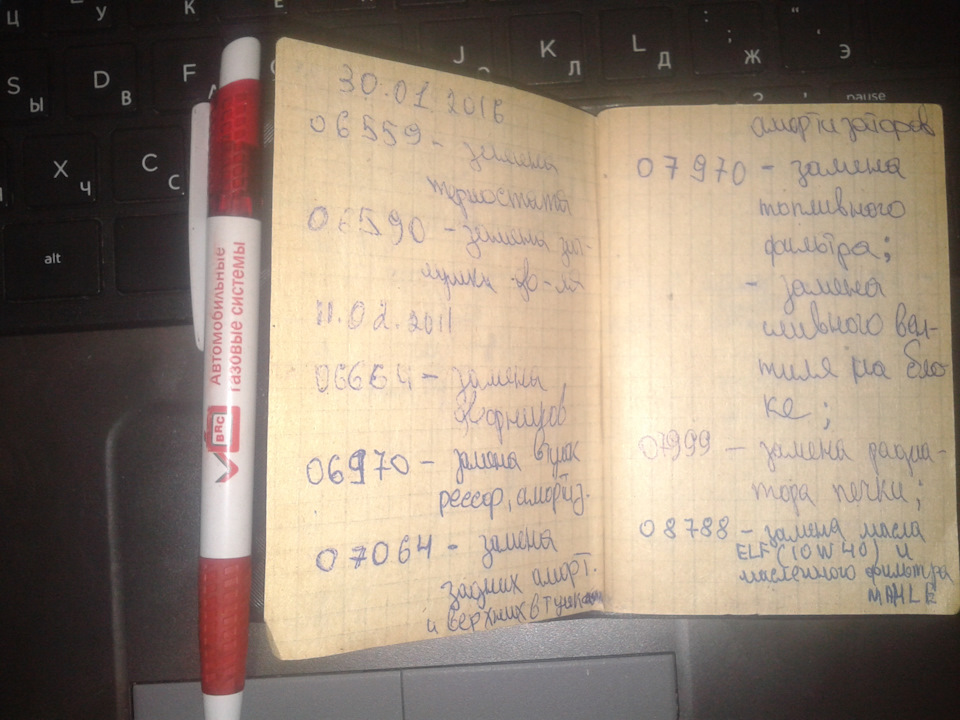 30.01.2016
06559 - замена
термостата
06590 - замена заг-
лушки
11.02.2011
06664 - замена
06970 - замена втулок
рессор, амортиз.
07064 - замена
задних аморт.
и верхних втулок
амортизаторов
07970 - замена
топливного
фильтра;
- замена
сливного вен-
тиля на бло-
ке;
07999 - замена радиа-
тора печки;
08788 - замена масла
ELF (10W40) и
масленного фильтра
MAHLE
Автомобильные
газовые системы
BRC
Ц
У
К
Е
J
K
Л
L
Д
:
;
Ж
"
'
Э
S
Ы
D
В
F
А
X
Ч
C
С
alt
pause